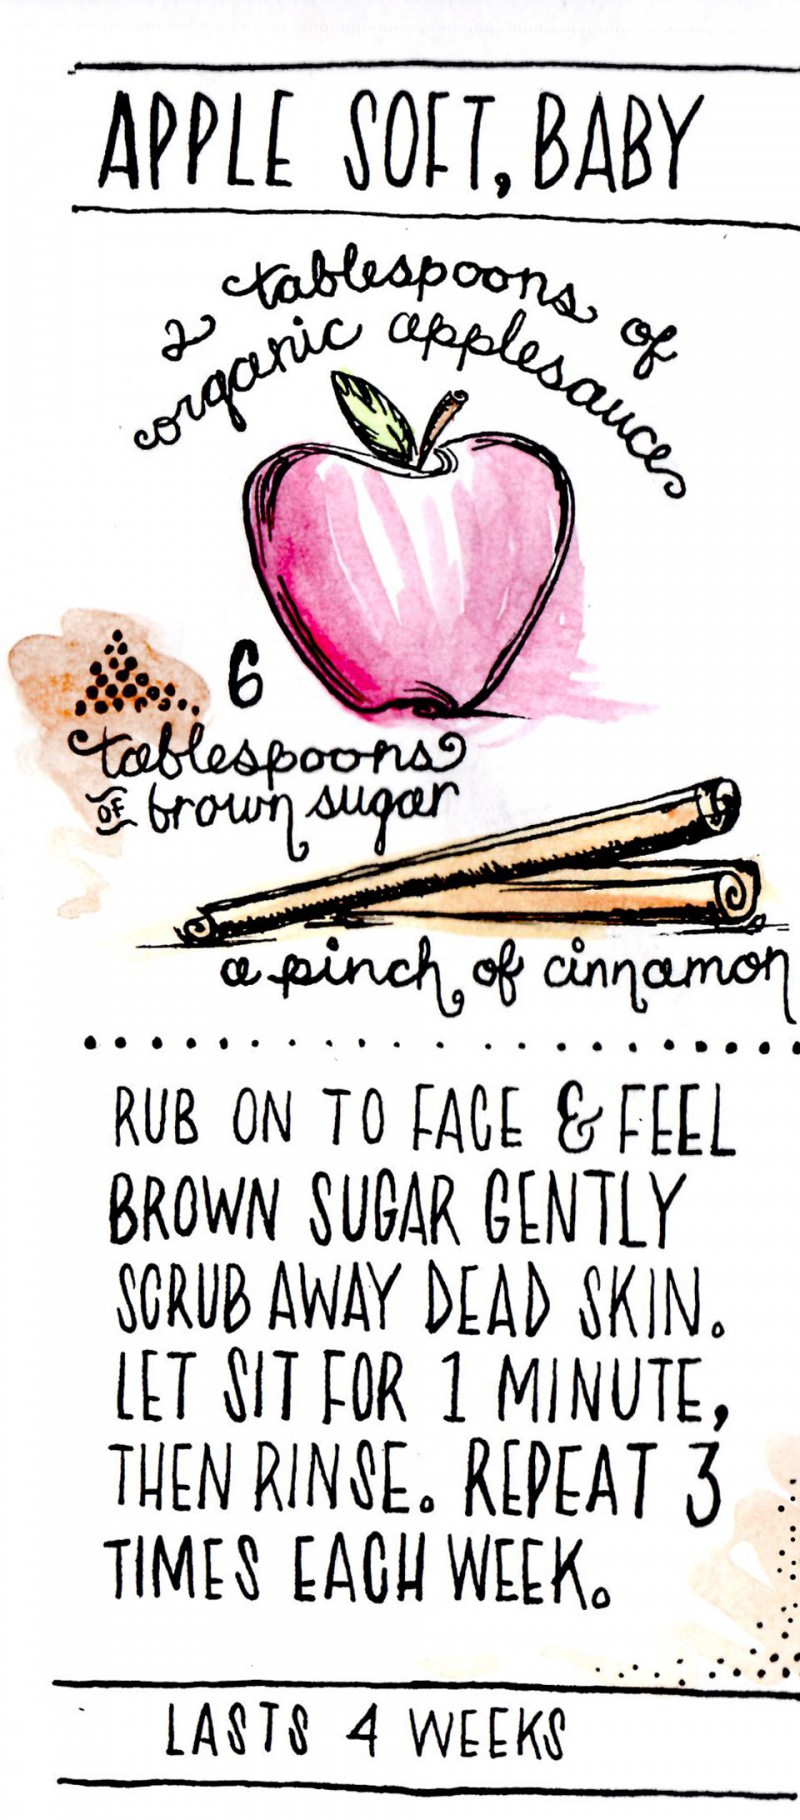 APPLE SOFT, BABY
2 tablespoons of
organic applesauce
6
tablespoons
OF brown sugar
a pinch of cinnamon
RUB ON TO FACE & FEEL
BROWN SUGAR GENTLY
SCRUB AWAY DEAD SKIN.
LET SIT FOR 1 MINUTE,
THEN RINSE. REPEAT 3
TIMES EACH WEEK.
LASTS 4 WEEKS